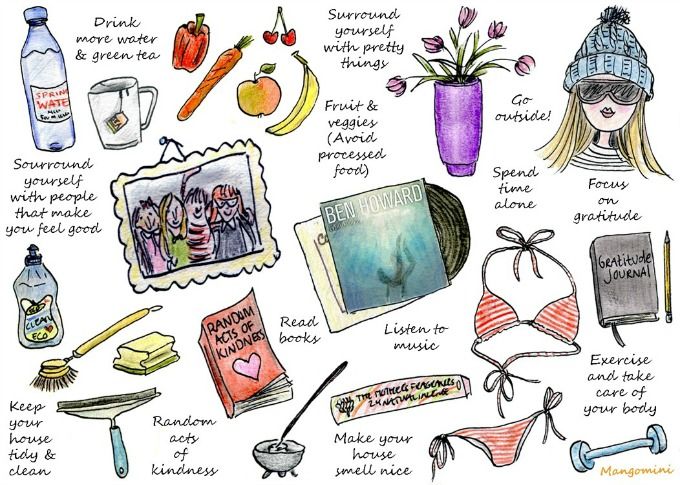 Drink
more water
& green tea
Surround
yourself
with pretty
things
Go
outside!
SPRING
WATER
Fruit &
veggies
(Avoid
processed
food)
Sourround
yourself
with people
that make
you feel good
Spend
time
alone
Focus
on
gratitude
BEN HOWARD
GRATITUDE
JOURNAL
CLEAN
ECO
RANDOM
ACTS OF
KINDNESS
Read
books
Listen to
music
Exercise
and take
care of
your body
THE MOTHER'S FRAGRANCES
Keep
your
house
tidy &
clean
Random
acts
of
kindness
Make your
house
smell nice
Mangomini